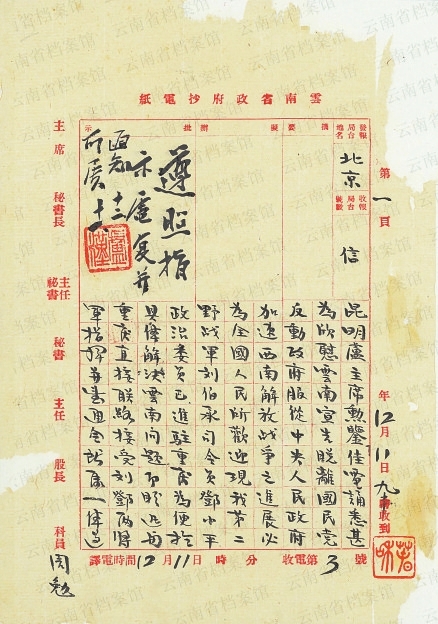 雲南省政府抄電紙
第一頁
發報局台地名
北京
收報局台號數
信
摘要
擬辦
批示
遵照指
示 盧复並
昆明盧主席勳鑒佳電誦悉甚
為欣慰雲南宣告脫離國民党
反動政府服從中央人民政府
加速西南解放战争之進展必
為全國人民所歡迎現我第二
野战軍刘伯承司令員鄧小平
政治委員已進駐重慶為便於
具體解決雲南問題即盼迅與
重慶直接联絡接受刘鄧两將
軍指揮並嘱通令所属一体遵
年12月11日九時收到
收電第3號
譯電時間12月11日 時 分
主席
秘書長
主任秘書
秘書
主任
股長
科員
周勉
云南省档案馆